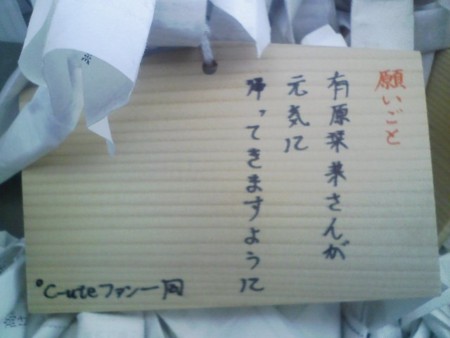 願いごと
有原栞菜さんが
元気に
帰ってきますように
°C-uteファン一同